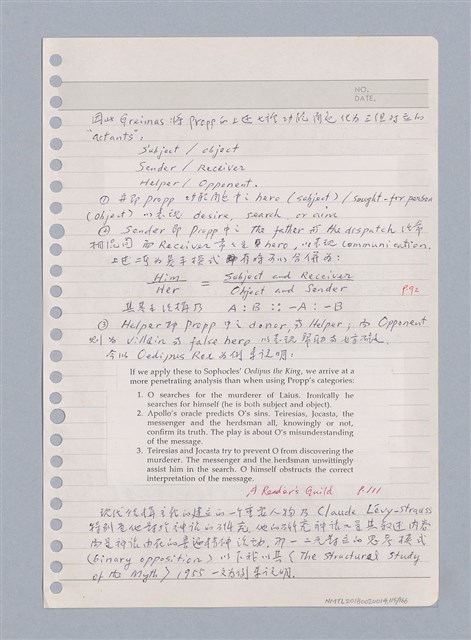 NO.
DATE.
因此 Greimas 將 Propp 的上述七種功能角色化為三組對立的
"actants":
Subject / object
Sender / Receiver
Helper / Opponent.
① 即 Propp 中 hero (subject) / sought-for person
(object) 以表現 desire, search, or aim
② Sender 即 Propp 中之 father 或 the dispatch
而 Receiver 常是 hero, 以表現 communication.
上述二項為基本模式 有時可以合併為:
Him / Her = Subject and Receiver / Object and Sender P.92
其基本結構乃 A : B :: -A : -B
③ Helper 即 Propp 中之 donor, 或 Helper; 而 Opponent
則為 villain 或 false hero 以表現幫助或妨礙.
今以 Oedipus Rex 為例來說明:
If we apply these to Sophocles' Oedipus the King, we arrive at a
more penetrating analysis than when using Propp's categories:
1. O searches for the murderer of Laius. Ironically he
searches for himself (he is both subject and object).
2. Apollo's oracle predicts O's sins. Teiresias, Jocasta, the
messenger and the herdsman all, knowingly or not,
confirm its truth. The play is about O's misunderstanding
of the message.
3. Teiresias and Jocasta try to prevent O from discovering the
murderer. The messenger and the herdsman unwittingly
assist him in the search. O himself obstructs the correct
interpretation of the message.
A Reader's Guild P.111
現代結構主義的建立的一個重要人物乃 Claude Lévy-Strauss
特別是他對於神話的研究. 他的研究神話不是其敘述內容
而是神話內在的 那一二元對立的思考模式
(binary opposition) 以下我以其〈The Structural Study
of the Myth〉1955 一文為例來說明.